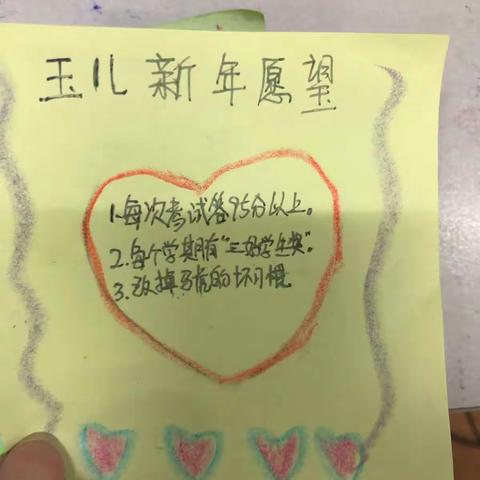 玉儿新年愿望
1.每次考试答95分以上。
2.每个学期有"三好学生奖"。
3.改掉马虎的坏习惯